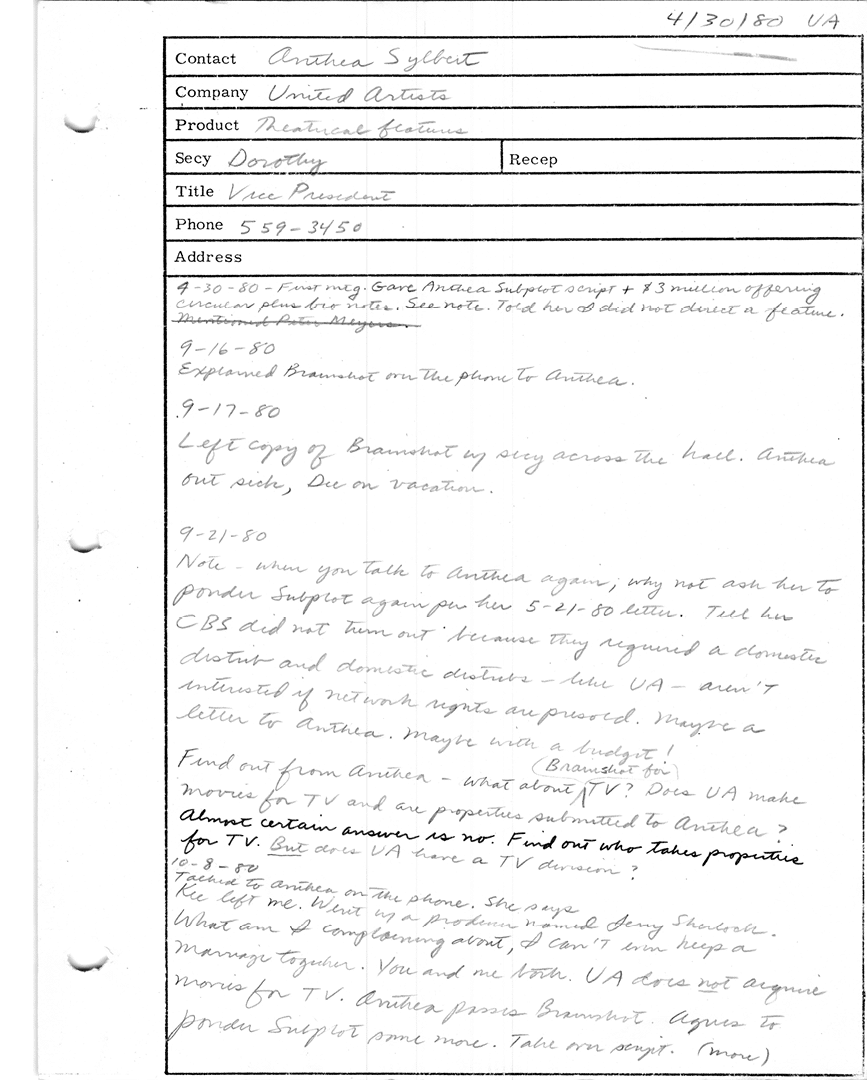 4/30/80 UA
Contact Anthea Sylbert
Company United Artists
Product Theatrical features
Secy Dorothy Recep
Title Vice President
Phone 559-3450
Address
4-30-80 - First mtg. Gave Anthea Subplot script + $3 million offering
circular plus bio notes. See note. Told her I did not direct a feature.
Mentioned Peter Meyers.
9-16-80
Explained Brainshot over the phone to Anthea.
9-17-80
Left copy of Brainshot w/ secy across the hall. Anthea
out sick, Dee on vacation.
9-21-80
Note - when you talk to Anthea again, why not ask her to
ponder Subplot again per her 5-21-80 letter. Tell her
CBS did not turn out because they required a domestic
distrib and domestic distribs - like UA - aren't
interested if network rights are presold. Maybe a
letter to Anthea. Maybe with a budget!
(Brainshot for)
Find out from Anthea - what about TV? Does UA make
movies for TV and are properties submitted to Anthea?
Almost certain answer is no. Find out who takes properties
for TV. But does UA have a TV division?
10-8-80
Talked to Anthea on the phone. She says
left me. Went w/ a producer named Jerry Sherlock.
What am I complaining about, I can't even keep a
marriage together. You and me both. UA does not acquire
movies for TV. Anthea passes Brainshot. Agrees to
ponder Subplot some more. Take over script. (more)